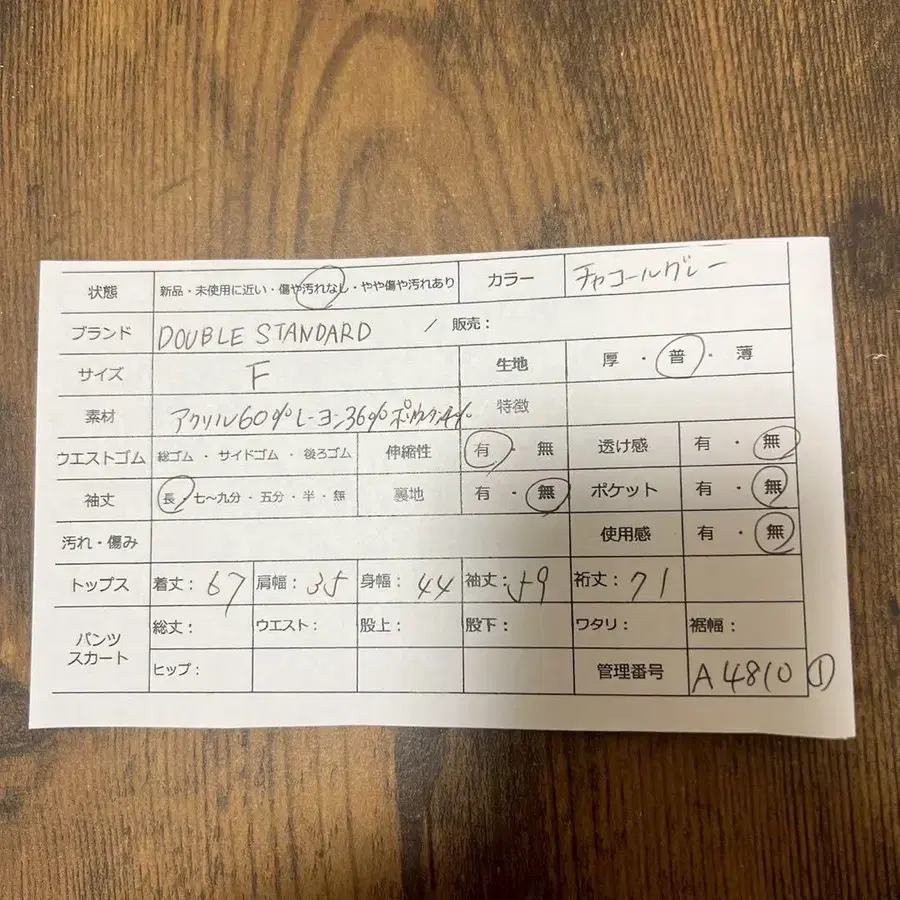 状態 新品・未使用に近い・傷や汚れなし・やや傷や汚れあり カラー チャコールグレー
ブランド DOUBLE STANDARD / 販売：
サイズ F 生地 厚・普・薄
素材 アクリル60% レーヨン36% ポリウレタン4% 特徴
ウエストゴム 総ゴム・サイドゴム・後ろゴム 伸縮性 有・無 透け感 有・無
袖丈 長・七〜九分・五分・半・無 裏地 有・無 ポケット 有・無
汚れ・傷み 使用感 有・無
トップス 着丈：67 肩幅：35 身幅：44 袖丈：59 裄丈：71
パンツ スカート 総丈： ウエスト： 股上： 股下： ワタリ： 裾幅：
ヒップ： 管理番号 A4810 ①